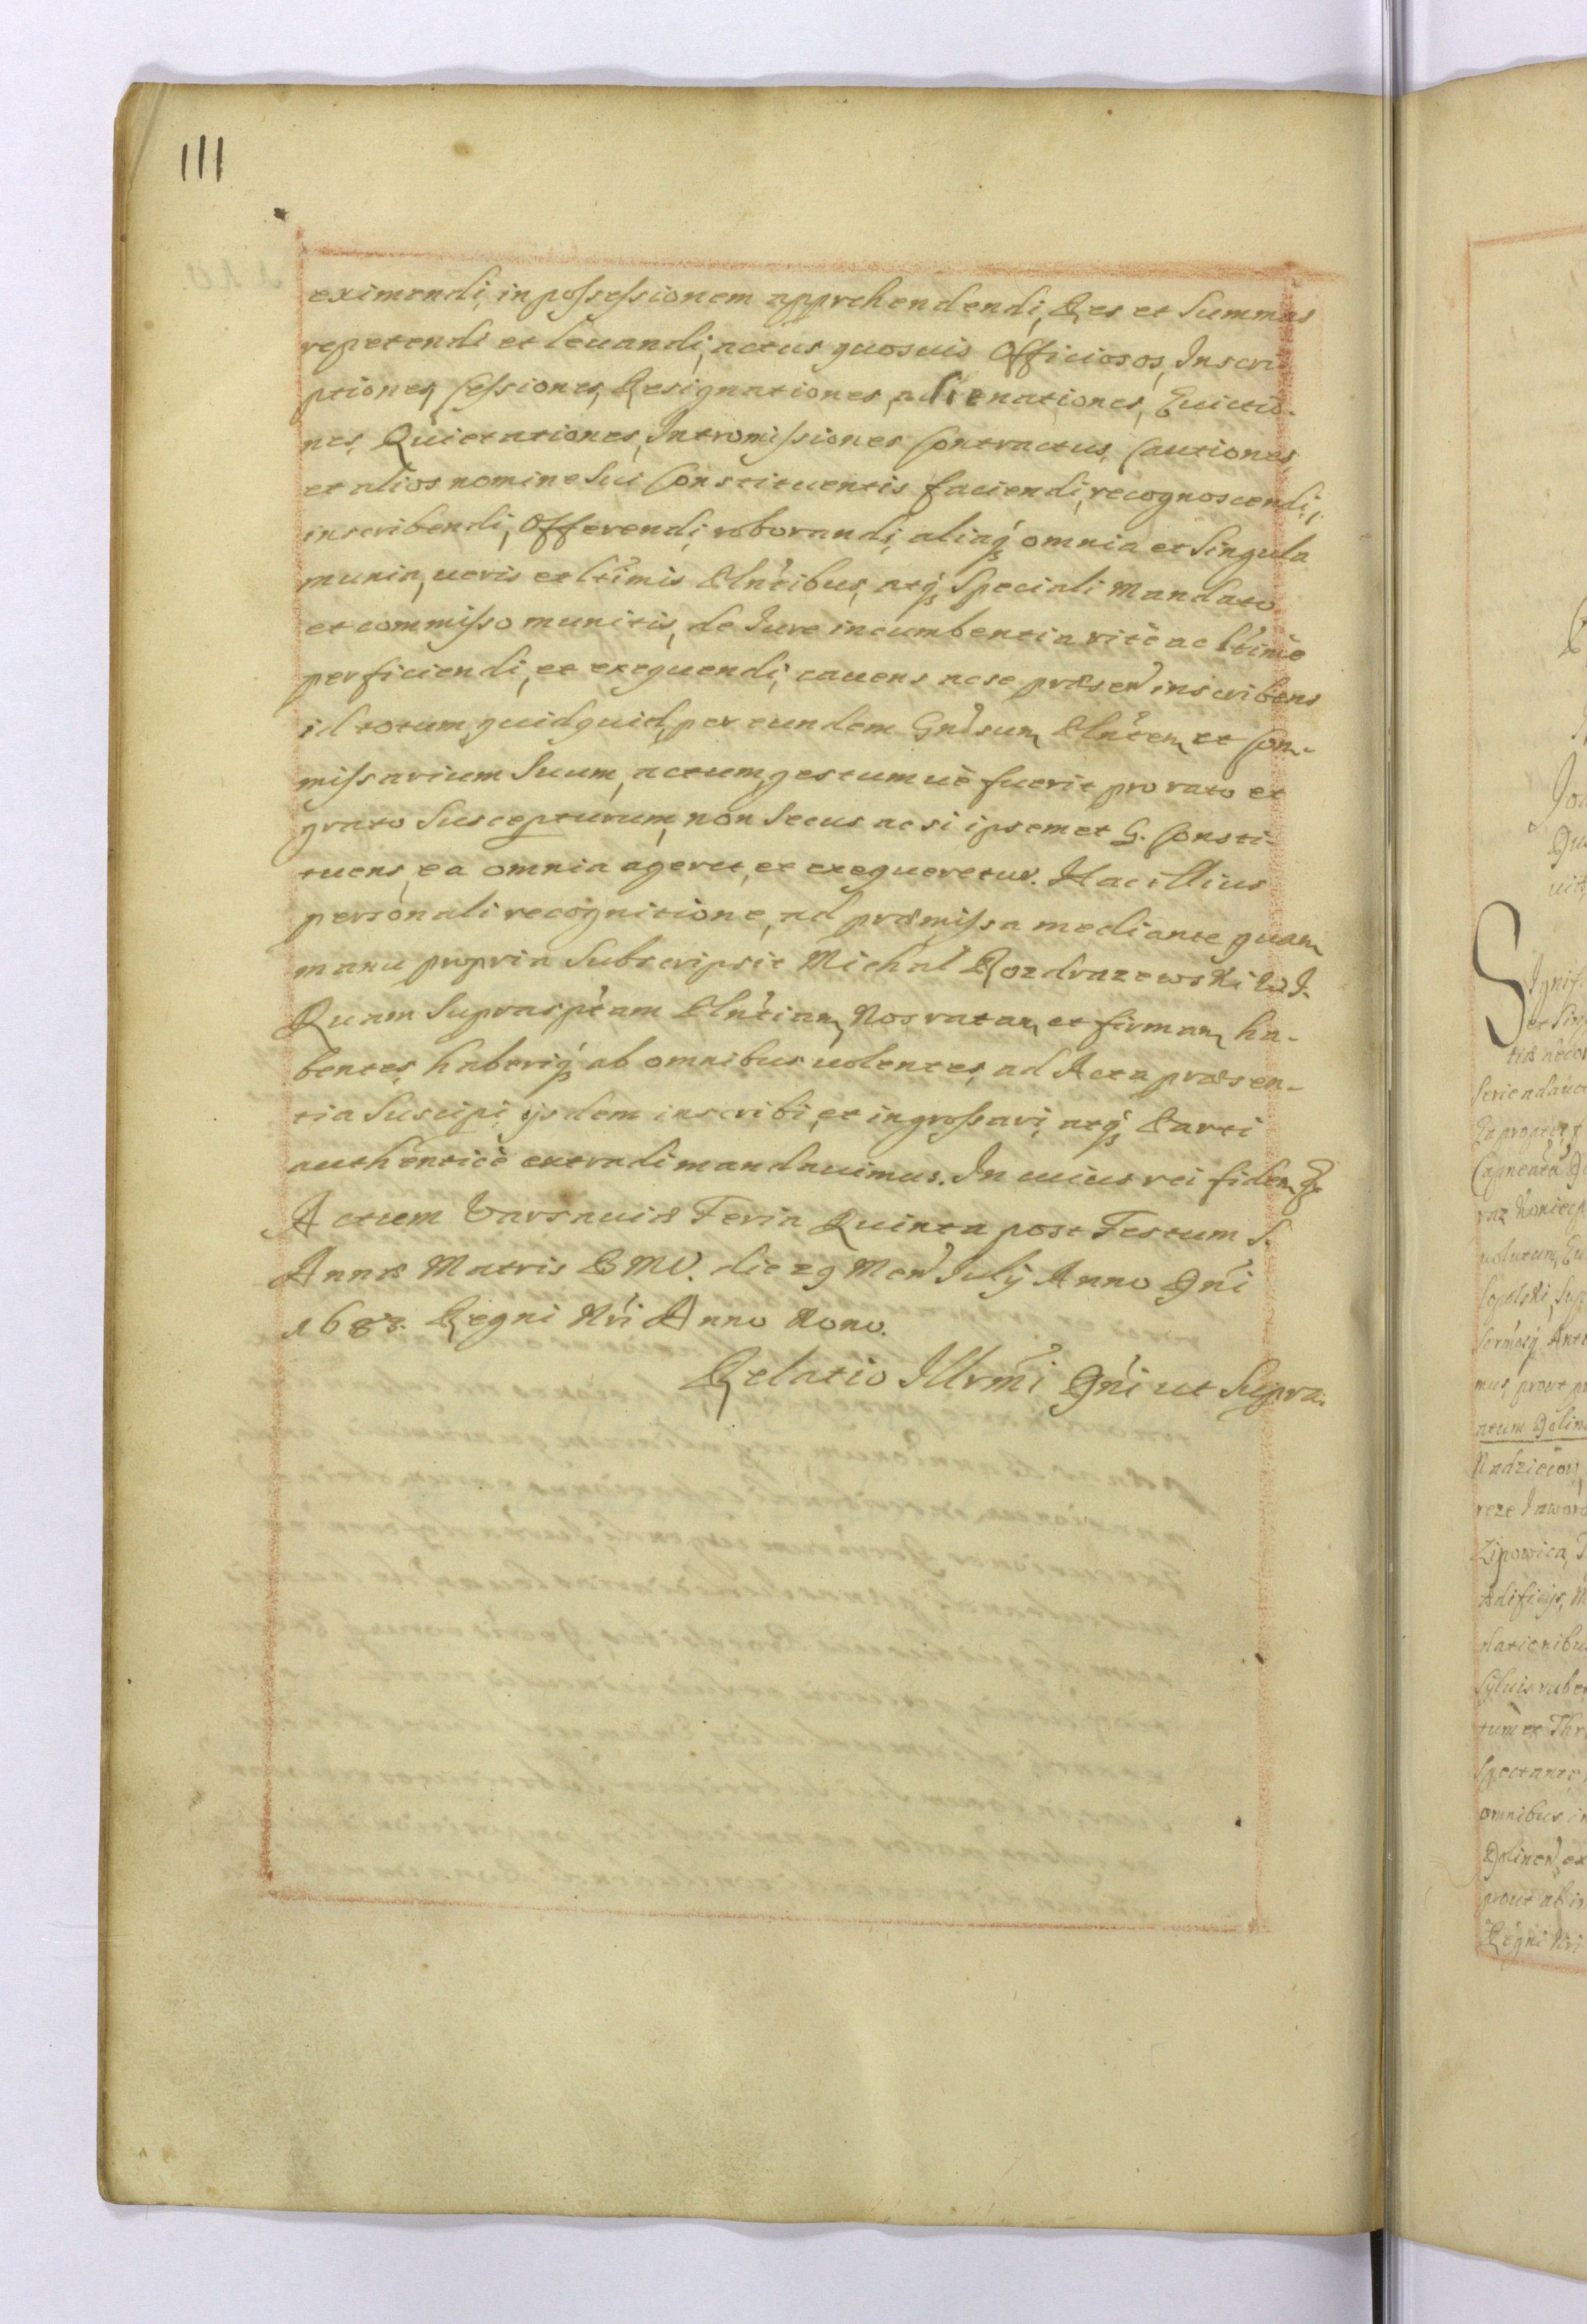 111
eximendi, in possessionem apprehendendi, Res et Summas
repetendi et levandi, actus quosvis Officiosos, Inscri-
ptiones, Cessiones, Resignationes, alienationes, Evictio-
nes, Quietationes, Intromissiones Contractus, Cautiones
et alios nomine sui Constituentis faciendi, recognoscendi,
inscribendi, Offerendi, roborandi, aliaq; omnia et Singula
munia, ueris et ltimis Plntibus, atq; Speciali Mandato
et commisso munitis, de Iure incumbentia ritè ac ltimè
perficiendi, et exequendi, cauens ac se præsen inscribens
id totum, quidquid, per eundem Gnsum Plntem et Com-
missarium Suum, actum, gestumuè fuerit pro rato et
grato Suscepturum, non Secus ac si ipsemet G. Consti-
tuens, ea omnia ageret, et exequeretur. Hac illius
personali recognitione, ad præmissa mediante quam
manu propria Subscripsit Michal Rozdrazewski W I.
Quam Suprasptam Plntiam, Nos ratam et firmam ha-
bentes, haberiq; ab omnibus uolentes, ad Acta præsen-
tia Suscipi, ijsdem inscribi, et ingrossari, atq; Parti
authenticè extradi mandauimus. In cuius rei fidem &
Actum Varsauiæ Feria Quinta post Festum S.
Annæ Matris B M V. die 29 Men Iulij Anno Dni
1683. Regni Nri Anno Nono.
Relatio Illrmi Dni ut Supra.
Signif
et Sin
Nadziciow
Lipowica,
Ædificijs, M
dationibus
omnibus in
prout ab in
Regni Nri